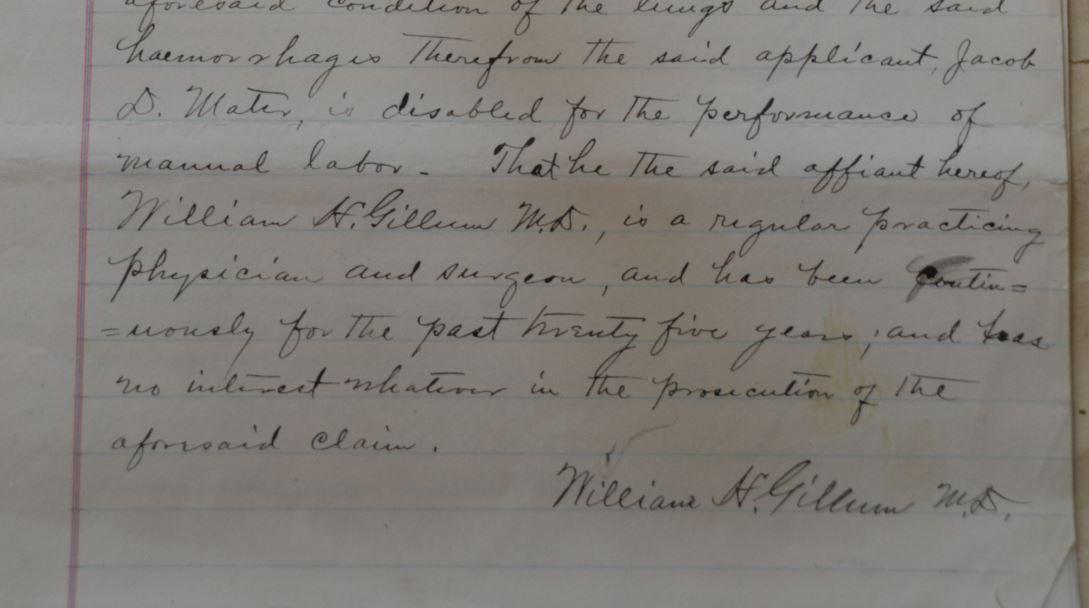 aforesaid condition of the lungs and the said
haemorrhages therefrom the said applicant, Jacob
D. Mater, is disabled for the performance of
manual labor. That he the said affiant hereof,
William H. Gillum M.D., is a regular practicing
physician and surgeon, and has been contin=
=uously for the past twenty five years; and has
no interest whatever in the prosecution of the
aforesaid claim.
William H. Gillum M.D.